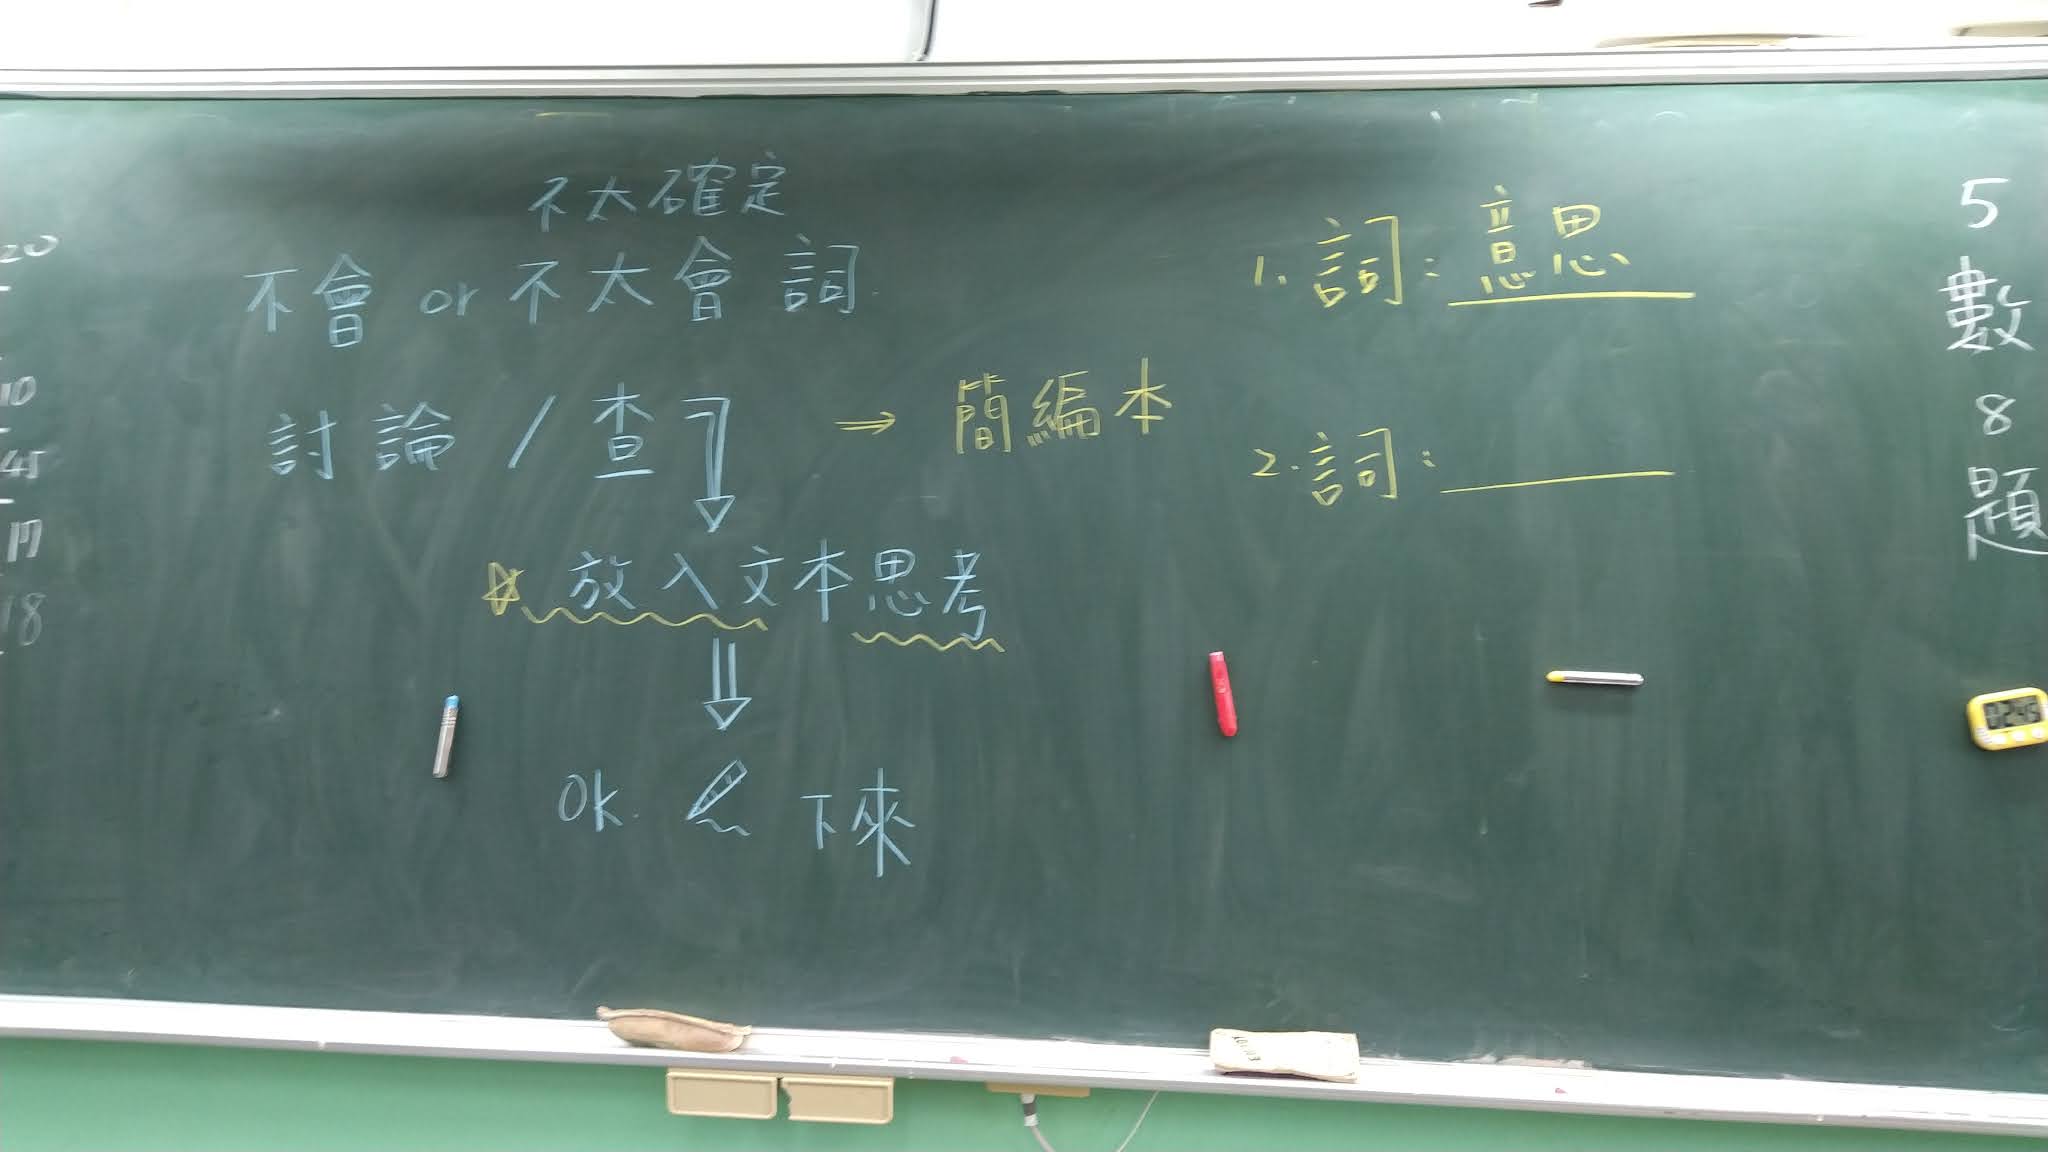 20
10
45
17
18
不太確定
不會 or 不太會 詞.
討論 / 查 ⇒ 簡編本
☆ 放入文本思考
OK. 下來
1. 詞: 意思
2. 詞:
5
數
8
題